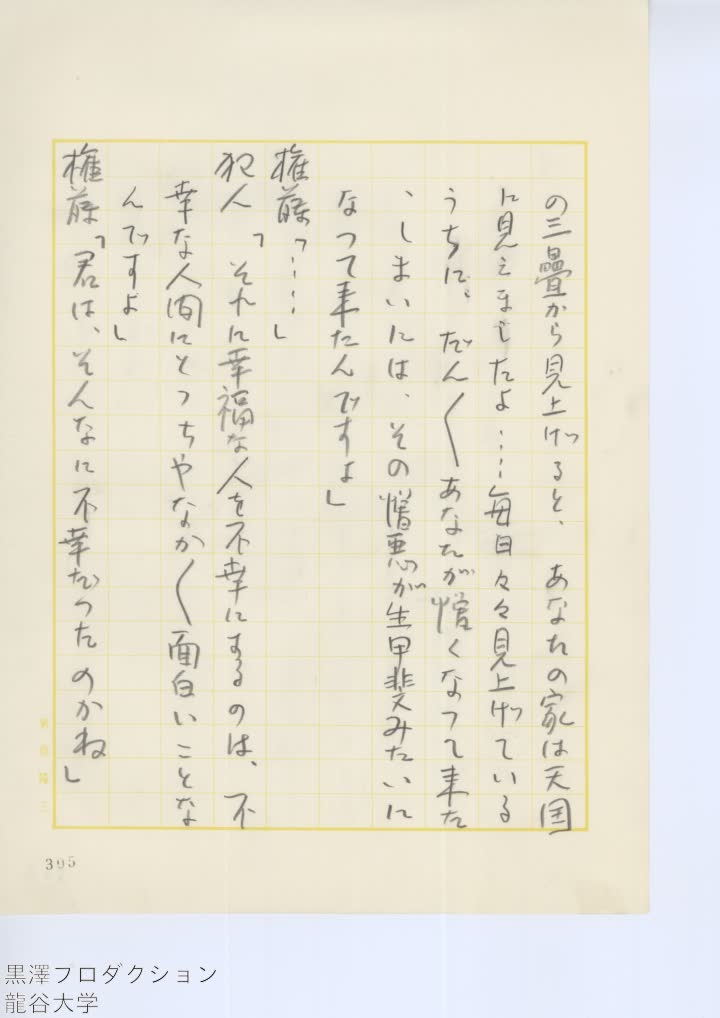 の三疊から見上げると、あなたの家は天国
に見えましたよ……毎日々々見上げている
うちに、だん〱あなたが憎くなつて来た
、しまいには、その憎悪が生甲斐みたいに
なつて来たんですよ」
権藤「……」
犯人「それに幸福な人を不幸にするのは、不
幸な人間にとつちやなか〱面白いことな
んですよ」
権藤「君は、そんなに不幸だつたのかね」
395
黒澤プロダクション
龍谷大学